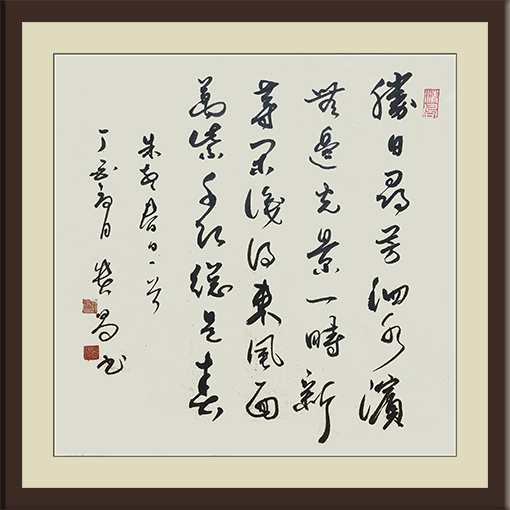 勝日尋芳泗水濱
無邊光景一時新
等閒識得東風面
萬紫千紅總是春
朱熹春日一首
丁亥月書